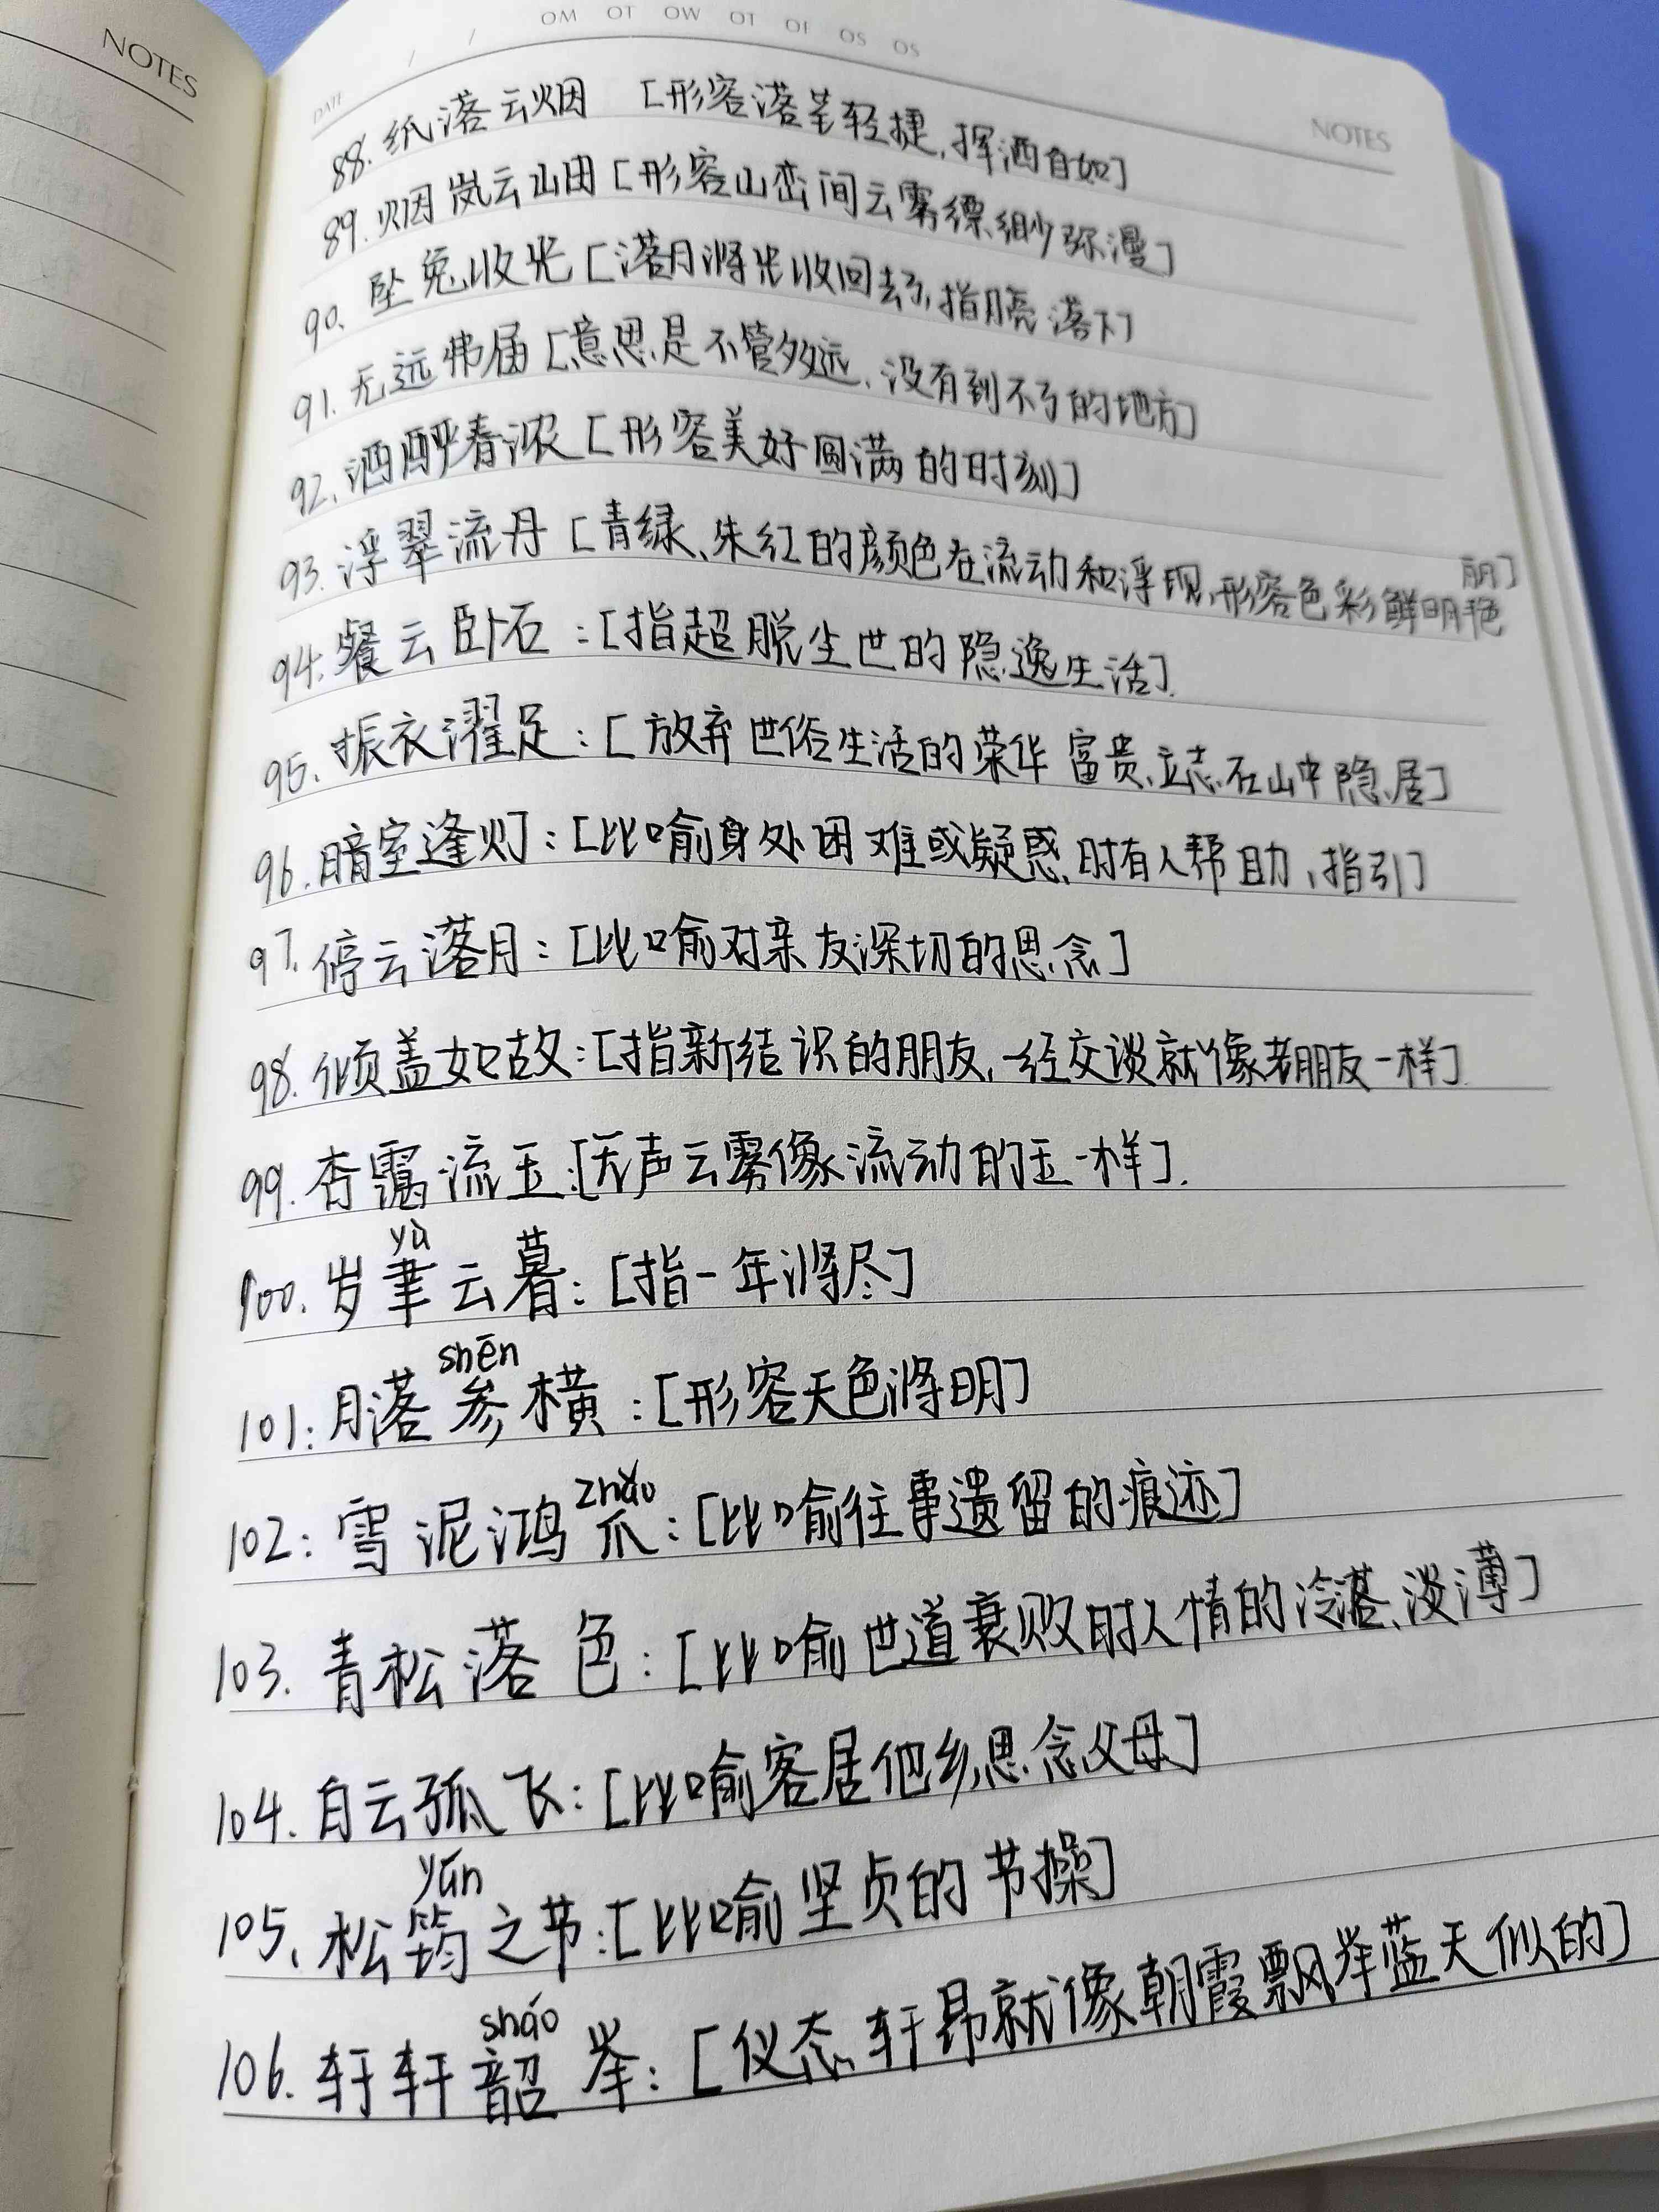 NOTES
OM OT OW OT OF OS OS
DATE / /
NOTES
88. 纸落云烟 [形容落笔轻捷,挥洒自如]
89. 烟岚云岫 [形容山峦间云雾缥缈弥漫]
90. 坠兔收光 [落月将光收回去了,指月亮落下]
91. 无远弗届 [意思是不管多远,没有到不了的地方]
92. 酒酽春浓 [形容美好圆满的时刻]
93. 浮翠流丹 [青绿、朱红的颜色在流动和浮现,形容色彩鲜明艳丽]
94. 餐云卧石:[指超脱尘世的隐逸生活].
95. 振衣濯足:[放弃世俗生活的荣华富贵,立志在山中隐居]
96. 暗室逢灯:[比喻身处困难或疑惑时有人帮助,指引]
97. 停云落月:[比喻对亲友深切的思念]
98. 倾盖如故:[指新结识的朋友,一经交谈就像老朋友一样].
99. 杳霭流玉:[无声云雾像流动的玉一样].
yù
100. 岁聿云暮:[指一年将尽]
shēn
101: 月落参横:[形容天色将明]
zhǎo
102: 雪泥鸿爪:[比喻往事遗留的痕迹]
103. 青松落色:[比喻世道衰败时人情的冷落、淡薄]
104. 白云孤飞:[比喻客居他乡,思念父母]
yún
105. 松筠之节:[比喻坚贞的节操]
sháo
106. 轩轩韶举:[仪态轩昂就像朝霞飘举蓝天似的]